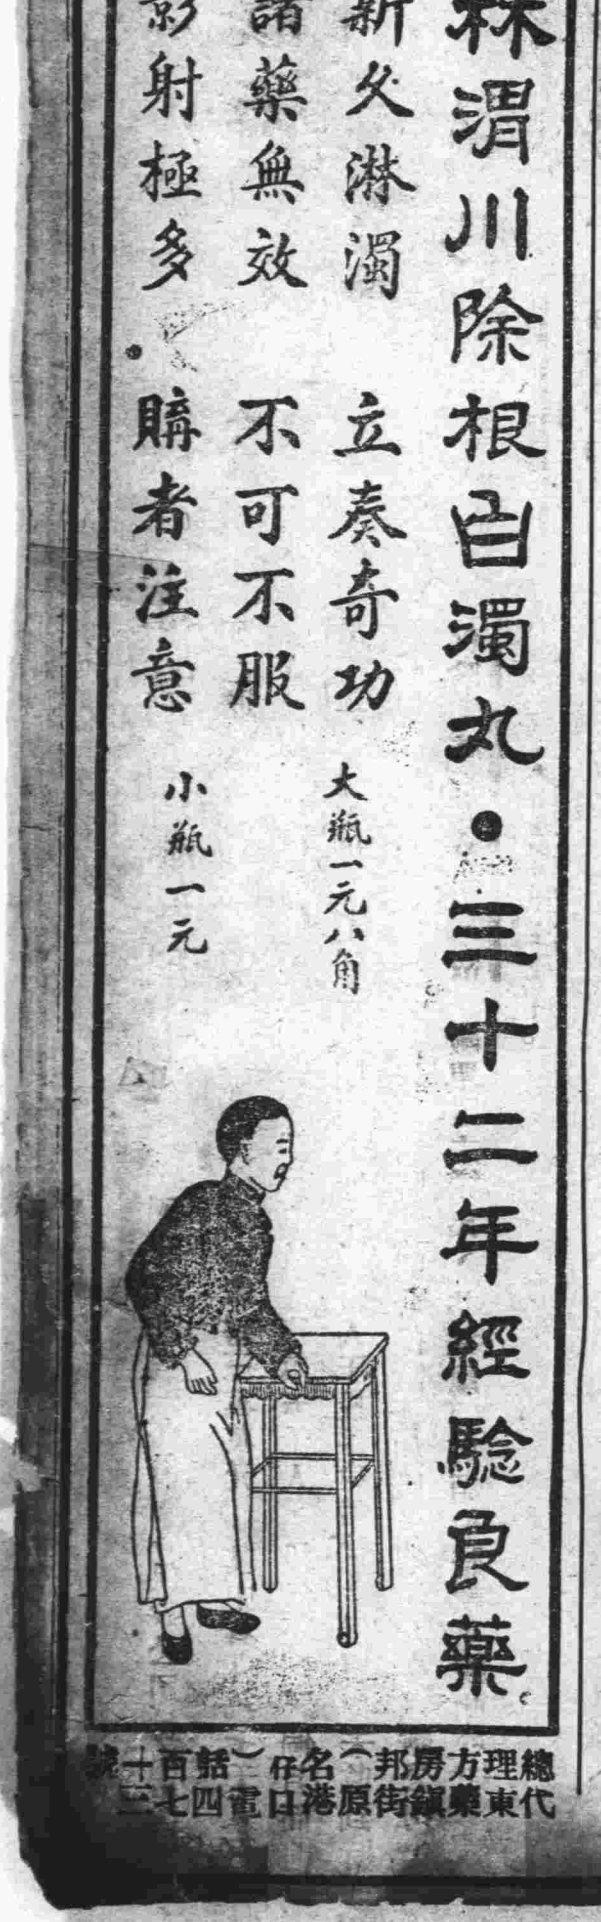 林渭川除根白濁丸●三十二年經驗良藥
新久淋濁 立奏奇功 大瓶一元八角
諸藥無效 不可不服
影射極多 購者注意 小瓶一元
總代理東方藥房鎮邦街（原名港仔口）電話四百七十三號